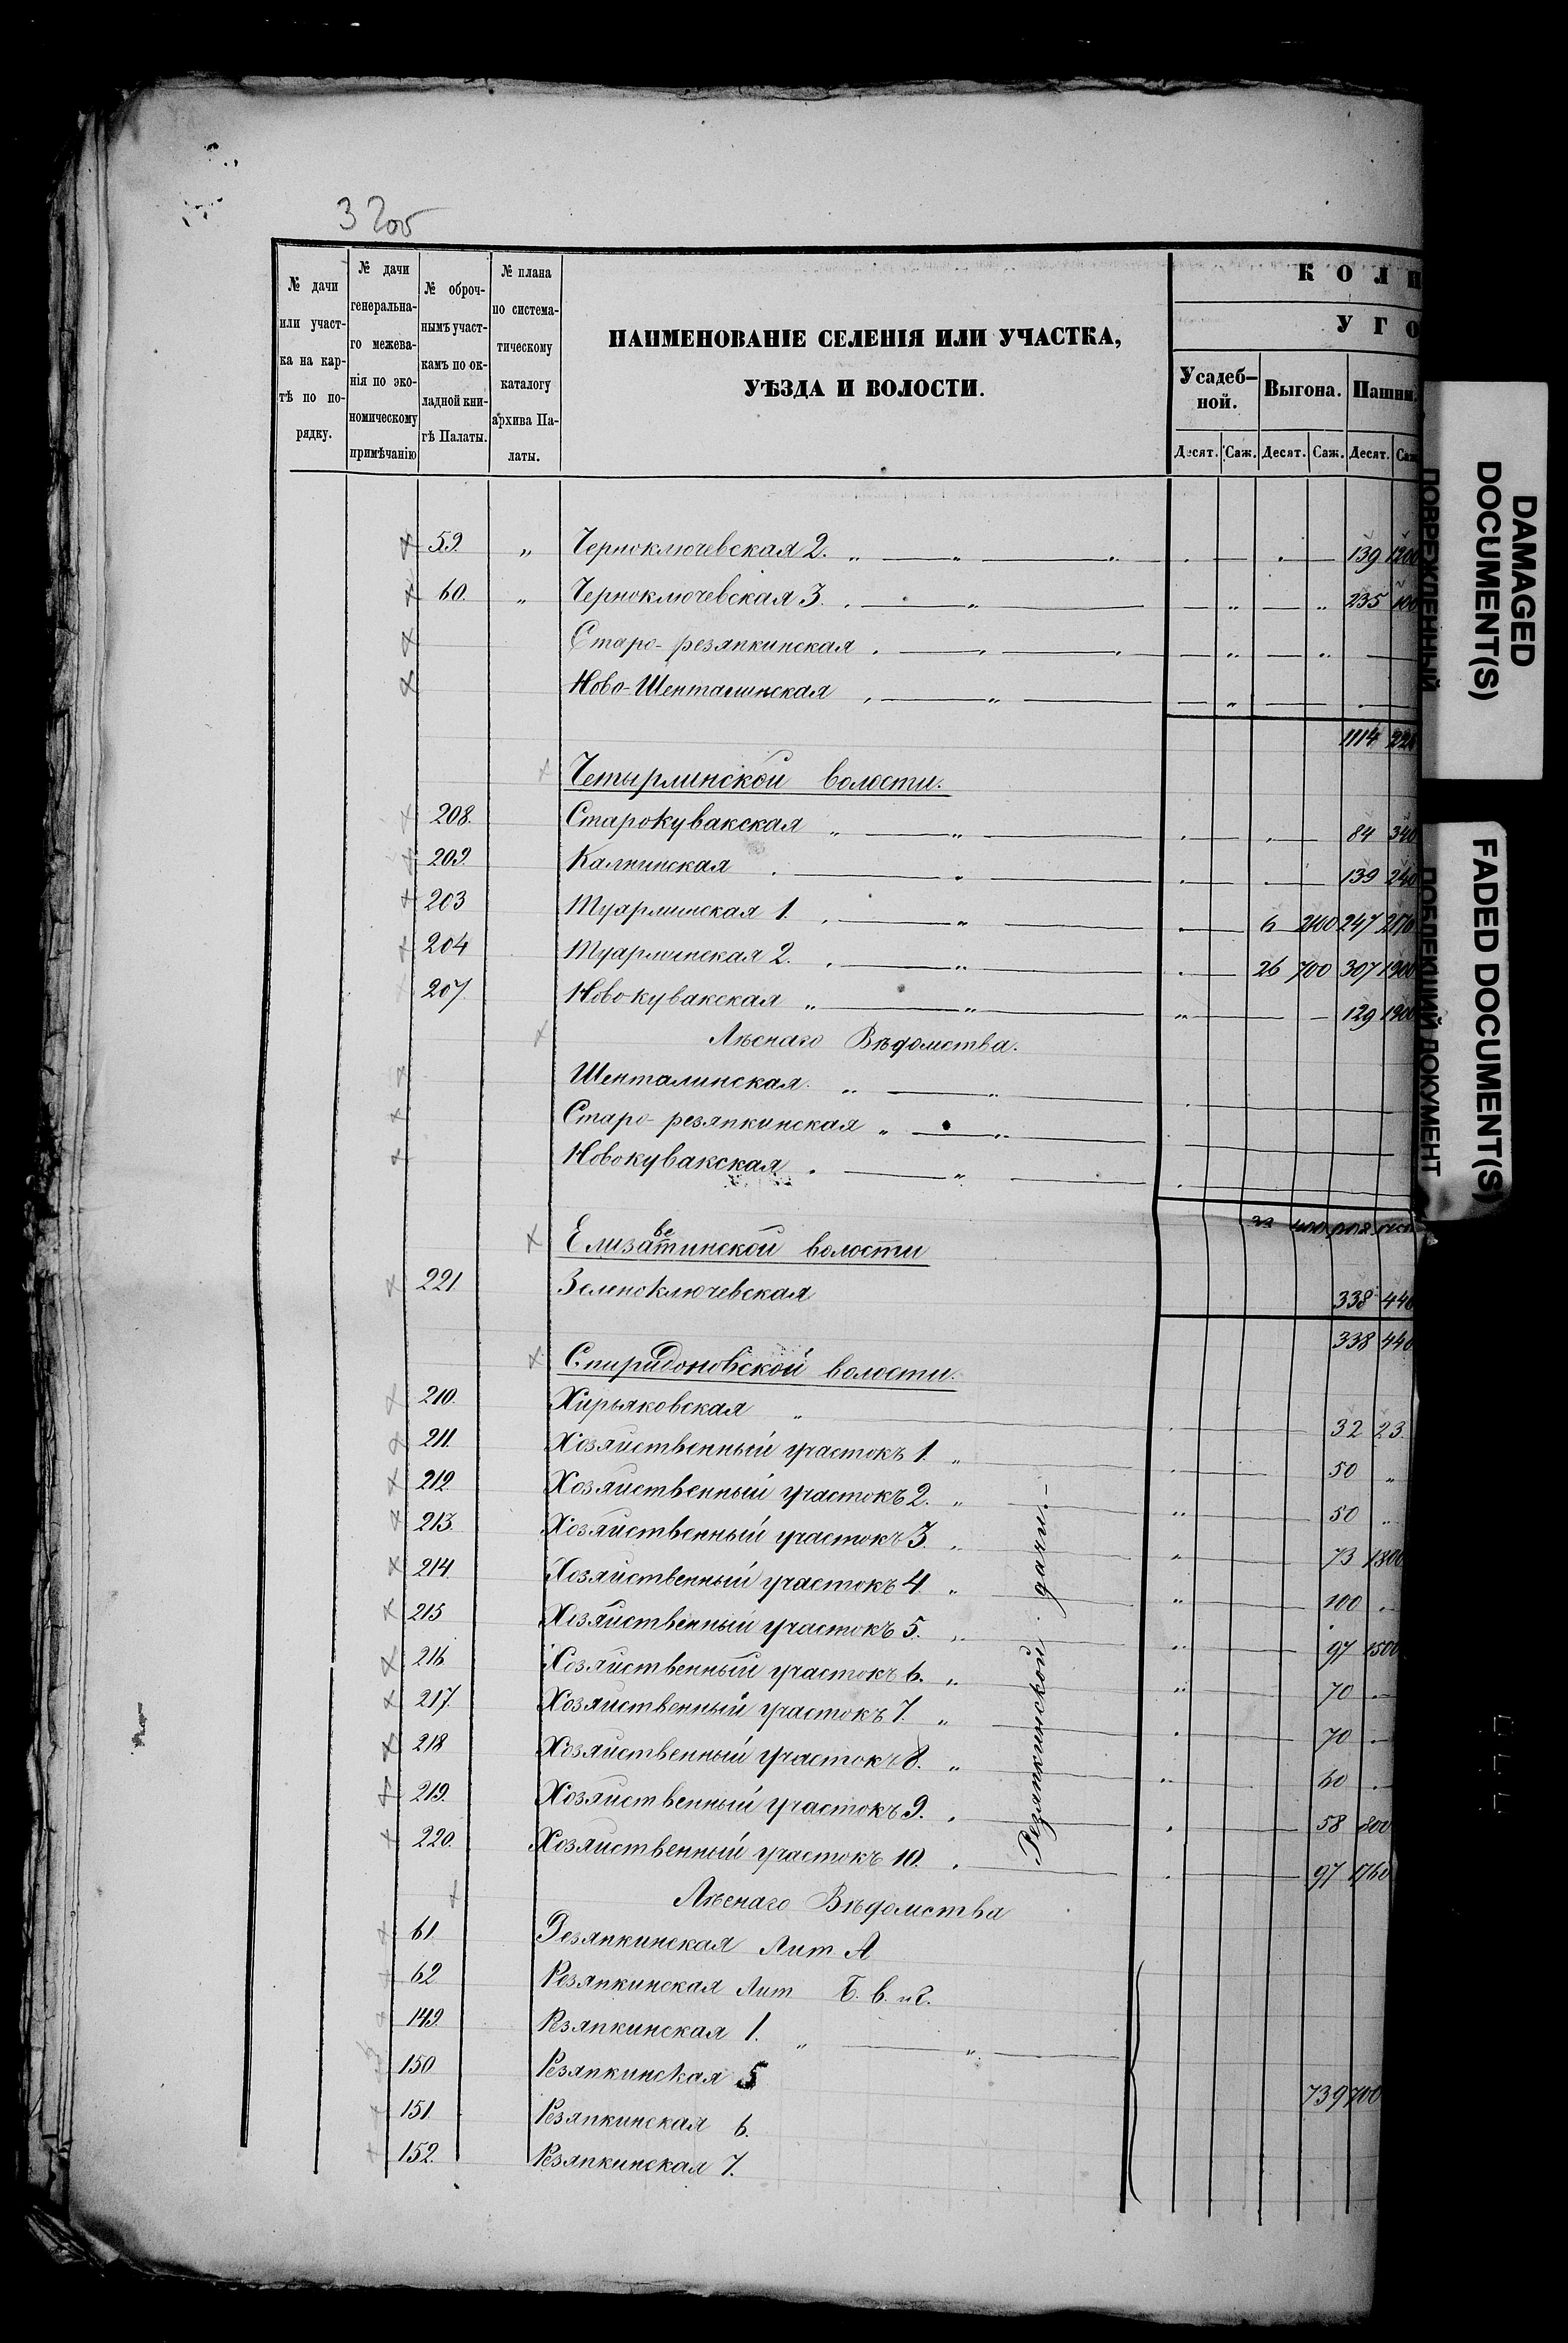 32об
№ дачи или участ-ка на кар-тѣ по по-рядку.
№ дачи генеральна-го межева-нія по эко-номическому примѣчанію
№ оброч-нымъ участ-камъ по ок-ладной кни-гѣ Палаты.
№ плана по система-тическому каталогу архива Па-латы.
НАИМЕНОВАНІЕ СЕЛЕНІЯ ИЛИ УЧАСТКА,
УѢЗДА И ВОЛОСТИ.
КОЛИ
УГО
Усадеб-ной. Выгона. Пашни.
Десят. Саж. Десят. Саж. Десят. Саж
59. „ Черноключевская 2. „ „ „ 139 1200
60. „ Черноключевская 3. „ 235 100
Старо-резяпкинская
Ново-Шенталинская
1114
Четырлинской волости.
208. Старокувакская „ „ 84 340
209. Калнинская 139 240
203 Туарминская 1. 6 2100 247
204 Туарминская 2. 26 700 307 1900
207. Новокувакская „ „ 129 1900
Лѣснаго Вѣдомства.
Шенталинская „ „
Старо-резяпкинская „ „
Новокувакская „
Елизаветинской волости
221. Зеленоключевская 338 440
338 440
Спиридоновской волости.
210. Хирьяковская „ 32 23.
211. Хозяйственный участокъ 1. „ 50 „
212. Хозяйственный участокъ 2. „ 50 „
213. Хозяйственный участокъ 3. „ 73 1800
214. Хозяйственный участокъ 4. „ 100
215 Хозяйственный участокъ 5. „ 97 1500
216 Хозяйственный участокъ 6. „ 70
217. Хозяйственный участокъ 7. „ 70
218 Хозяйственный участокъ 8. „ 60
219. Хозяйственный участокъ 9. 58 800
220. Хозяйственный участокъ 10. 97 1760
Резяпкинской дачи.
Лѣснаго Вѣдомства
61. Резяпкинская Лит А
62 Резяпкинская Лит Б. В. и Г.
149. Резяпкинская 1. „ „
150 Резяпкинская 5
151. Резяпкинская 6.
152. Резяпкинская 7.
739 700
DAMAGED
DOCUMENT(S)
ПОВРЕЖДЕННЫЙ
FADED DOCUMENT(S)
ПОБЛЕКШИЙ ДОКУМЕНТ